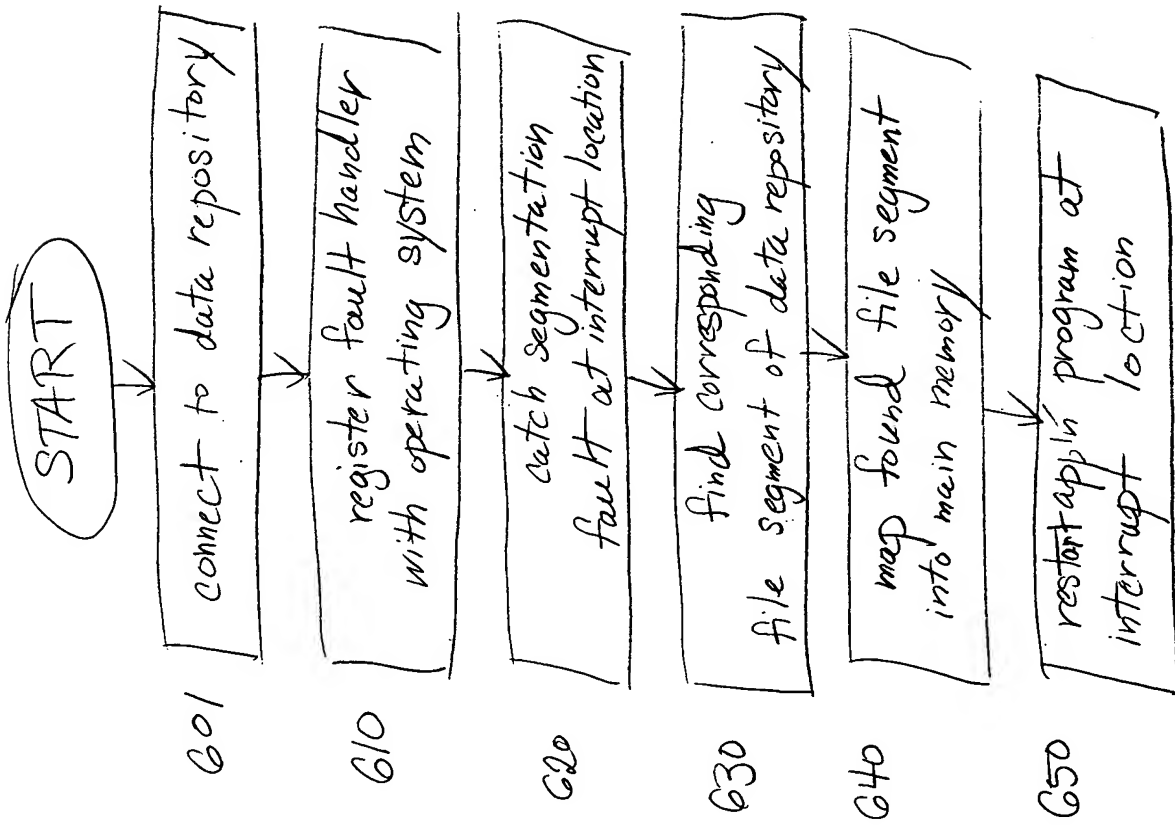 START
601
connect to data repository
610
register fault handler
with operating system
620
catch segmentation
fault at interrupt location
630
find corresponding
file segment of data repository
640
map found file segment
into main memory
650
restart appln program at
interrupt loction